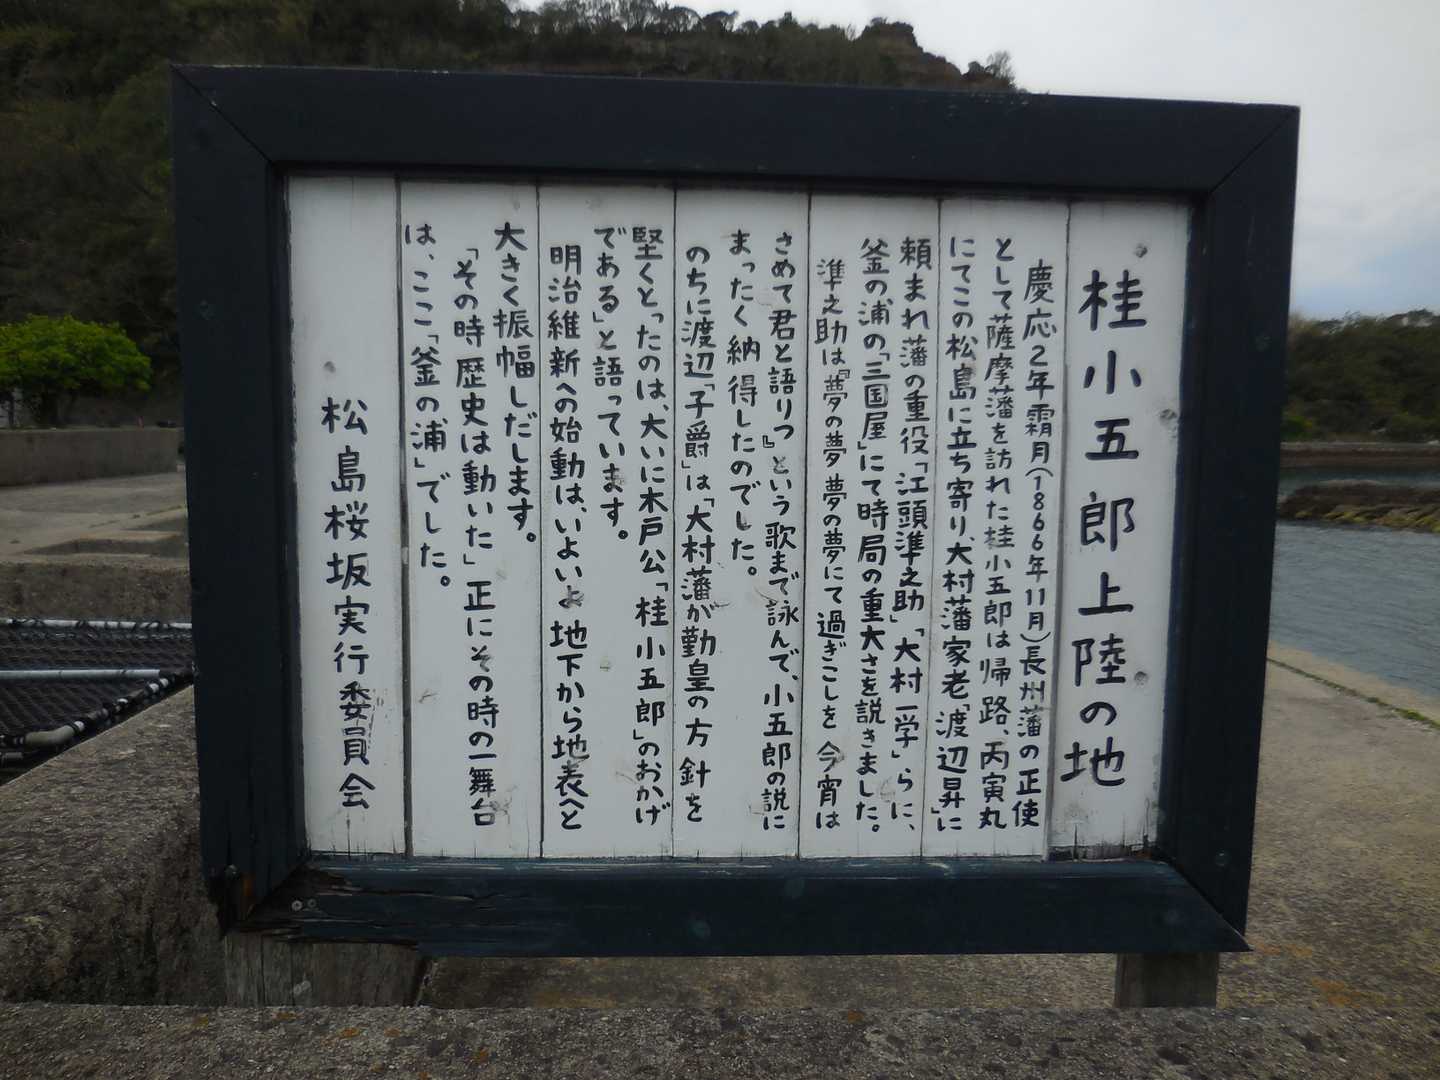 桂小五郎上陸の地
慶応2年霜月(1866年11月)長州藩の正使
として薩摩藩を訪れた桂小五郎は帰路、丙寅丸
にてこの松島に立ち寄り、大村藩家老「渡辺昇」に
頼まれ藩の重役「江頭準之助」「大村一学」らに、
釜の浦の「三国屋」にて時局の重大さを説きました。
準之助は『夢の夢 夢の夢にて 過ぎこしを 今宵は
さめて君と語りつ』という歌まで詠んで、小五郎の説に
まったく納得したのでした。
のちに渡辺「子爵」は「大村藩が勤皇の方針を
堅くとったのは、大いに木戸公「桂小五郎」のおかげ
である」と語っています。
明治維新への始動は、いよいよ地下から地表へと
大きく振幅しだします。
「その時歴史は動いた」正にその時の一舞台
は、ここ「釜の浦」でした。
松島桜坂実行委員会